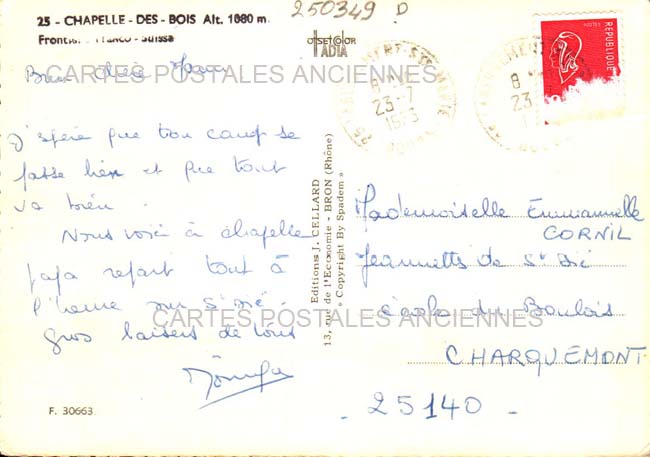 25 - CHAPELLE - DES - BOIS Alt. 1080 m.
250349 D
Franco - Suisse
offset color
IADIA
Bien chère
CARTES POSTALES ANCIENNES
J'espère que ton camp se
passe bien et que tout
va bien.
Nous voici à chapelle
papa repart tout à
l'heure sur St Dié.
CARTES POSTALES ANCIENNES
gros baisers de tous
F. 30663
Editions J. CELLARD
13, rue de l'Economie - BRON (Rhône)
« Copyright By Spadem »
23-7
1973
REPUBLIQUE
Mademoiselle Emmannelle
CORNIL
Jeannettes de St Dié
école du Boulois
CHARQUEMONT
- 25140 -